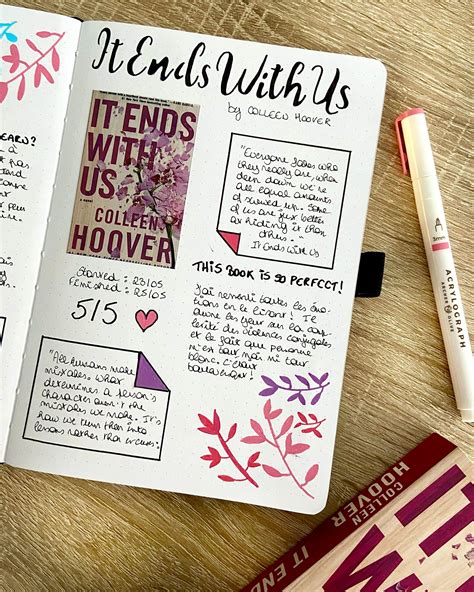 It Ends With Us
by COLLEEN HOOVER
IT ENDS
WITH
US
a novel
COLLEEN
HOOVER
Started : 23/05
Finished : 25/05
5/5
"Everyone fakes who
they really are, when
deep down we're
all equal amounts
of screwed up. Some
of us are just better
at hiding it than
others."
It Ends With Us
THIS BOOK IS SO PERFECT!
j'ai ressenti toutes les émo-
tions en le lisant ! Il
ouvre les yeux sur la
des violences conjugales
et le fait que personne
n'est tout noir ni tout
blanc. C'était
"All humans make
mistakes. What
determines a person's
character aren't the
mistakes we make. It's
how we turn them into
lessons rather than excuses."
ACRYLOGRAPH
COLLEEN
HOOVER
IT END
IT
W